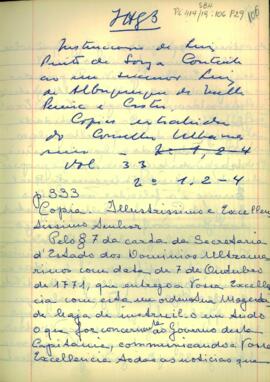 SBH
Pi 414/19:106 P29
106
IHGB
Instrucções de Luiz
Pinto de Souza Coutinho
ao seu successor Luiz
de Albuquerque de Mello
Pereira e Castro.
Copias extrahidas
do Conselho Ultrama
rino -
Vol. 33
1, 2-4
p. 333
Copia. Illustrissimo e Excellen
tissimo Senhor
Pelo § 7 da carta da Secretaria
d'Estado dos Dominios Ultrama
rinos com data de 7 de Outubro
de 1771, que entrego a Vossa Excellen
cia com esta me ordena Sua Magesta
de haja de instruil-o em tudo
o que for concernente ao Governo desta
Capitania, communicando a Vossa
Excellencia todas as noticias que